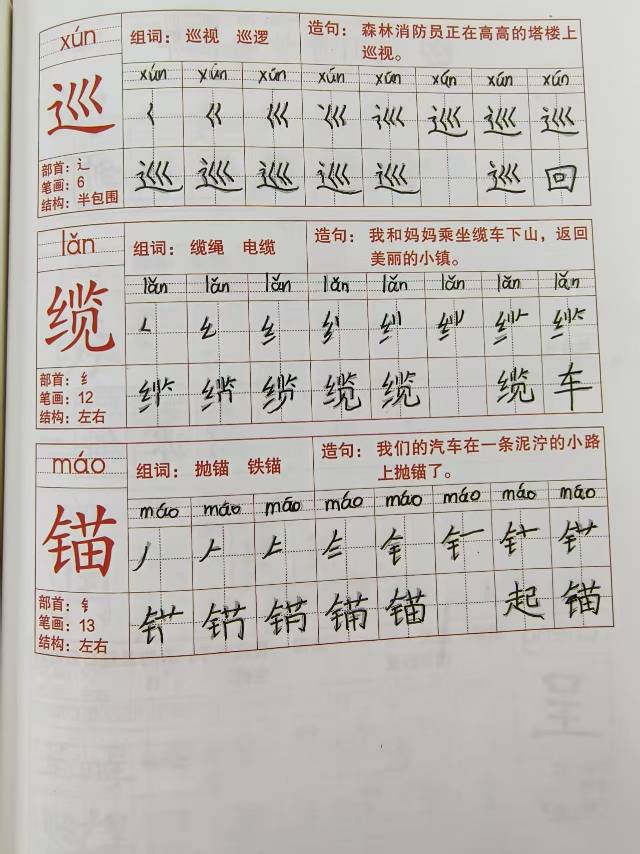 xún
组词：巡视 巡逻
造句：森林消防员正在高高的塔楼上
巡视。
巡
xún xún xún xún xún xún xún xún
巛 巡 巡 巡
部首：辶
笔画：6
结构：半包围
巡 巡 巡 巡 巡 巡 回
lǎn
组词：缆绳 电缆
造句：我和妈妈乘坐缆车下山，返回
美丽的小镇。
缆
lǎn lǎn lǎn lǎn lǎn lǎn lǎn lǎn
纟
部首：纟
笔画：12
结构：左右
缆 缆 缆 车
máo
组词：抛锚 铁锚
造句：我们的汽车在一条泥泞的小路
上抛锚了。
锚
máo máo máo máo máo máo máo máo
丿 𠂉 钅
部首：钅
笔画：13
结构：左右
锚 起 锚